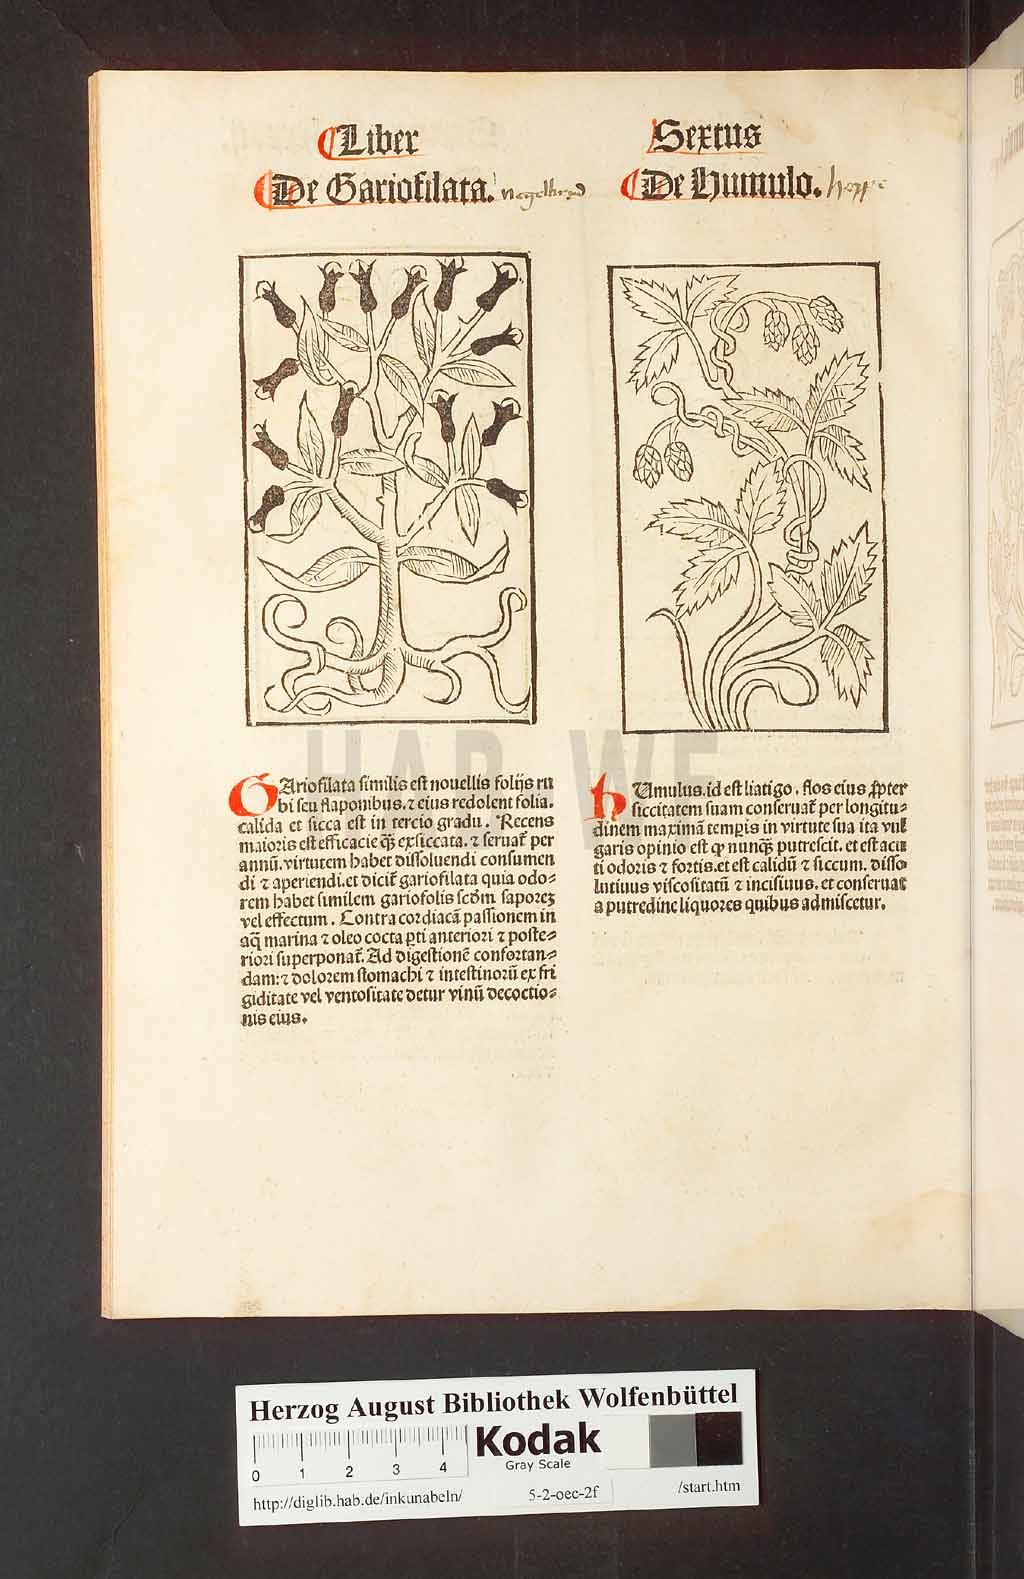 Liber
De Gariofilata.
GAriofilata similis est nouellis folijs ru
bi seu flaponibus. ⁊ eius redolent folia.
calida et sicca est in tercio gradu. Recens
maioris est efficacie qȝ̄ exsiccata. ⁊ seruat᷑ per
annū. virtutem habet dissoluendi consumen
di ⁊ aperiendi. et dicit᷑ gariofilata quia odo⸗
rem habet similem gariofolis scḋm saporeȝ
vel effectum. Contra cordiacā passionem in
aq̄ marina ⁊ oleo cocta ꝑti anteriori ⁊ poste⸗
riori superponat᷑. Ad digestionē confortan⸗
dam: ⁊ dolorem stomachi ⁊ intestinorū ex fri
giditate vel ventositate detur vinū decoctio⸗
nis eius.
Sextus
De Humulo. hopp
hUmulus. id est liatigo. flos eius ꝓpter
siccitatem suam conseruat᷑ per longitu⸗
dinem maximā temꝑis in virtute sua ita vul
garis opinio est ꝙ nunqȝ̄ putrescit. et est acu
ti odoris ⁊ fortis. et est calidū ⁊ siccum. disso
lutiuus viscositatū ⁊ incisiuus. et conseruat
a putredine liquores quibus admiscetur.
HAB WF
Herzog August Bibliothek Wolfenbüttel
0 1 2 3 4
Kodak
Gray Scale
http://diglib.hab.de/inkunabeln/ 5-2-oec-2f /start.htm